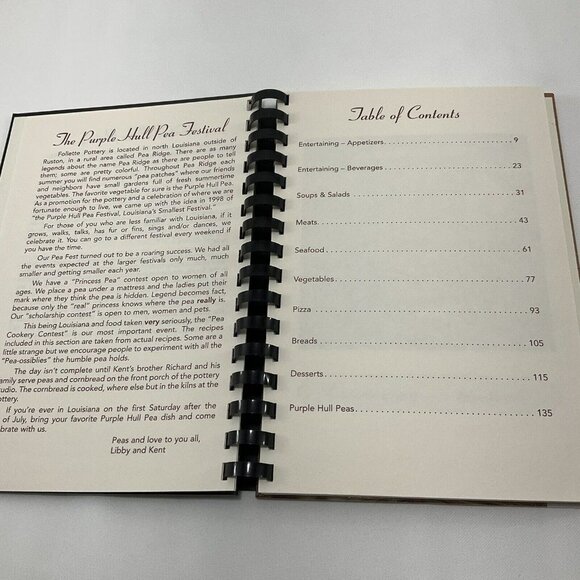 The Purple Hull Pea Festival
Follette Pottery is located in north Louisiana outside of
Ruston, in a rural area called Pea Ridge. There are as many
legends about the name Pea Ridge as there are people to tell
them; some are pretty colorful. Throughout Pea Ridge each
summer you will find numerous "pea patches" where our friends
and neighbors have small gardens full of fresh summertime
vegetables. The favorite vegetable for sure is the Purple Hull Pea.
As a promotion for the pottery and a celebration of where we are
fortunate enough to live, we came up with the idea in 1998 of
"the Purple Hull Pea Festival, Louisiana's Smallest Festival."
For those of you who are less familiar with Louisiana, if it
grows, walks, talks, has fur or fins, sings and/or dances, we
celebrate it. You can go to a different festival every weekend if
you have the time.
Our Pea Fest turned out to be a roaring success. We had all
the events expected at the larger festivals only much, much
smaller and getting smaller each year.
We have a "Princess Pea" contest open to women of all
ages. We place a pea under a mattress and the ladies put their
mark where they think the pea is hidden. Legend becomes fact,
because only the "real" princess knows where the pea really is.
Our "scholarship contest" is open to men, women and pets.
This being Louisiana and food taken very seriously, the "Pea
Cookery Contest" is our most important event. The recipes
included in this section are taken from actual recipes. Some are a
little strange but we encourage people to experiment with all the
"Pea-ossiblies" the humble pea holds.
The day isn't complete until Kent's brother Richard and his
family serve peas and cornbread on the front porch of the pottery
studio. The cornbread is cooked, where else but in the kilns at the
pottery.
If you're ever in Louisiana on the first Saturday after the
of July, bring your favorite Purple Hull Pea dish and come
celebrate with us.
Peas and love to you all,
Libby and Kent
Table of Contents
Entertaining – Appetizers 9
Entertaining – Beverages 23
Soups & Salads 31
Meats 43
Seafood 61
Vegetables 77
Pizza 93
Breads 105
Desserts 115
Purple Hull Peas 135